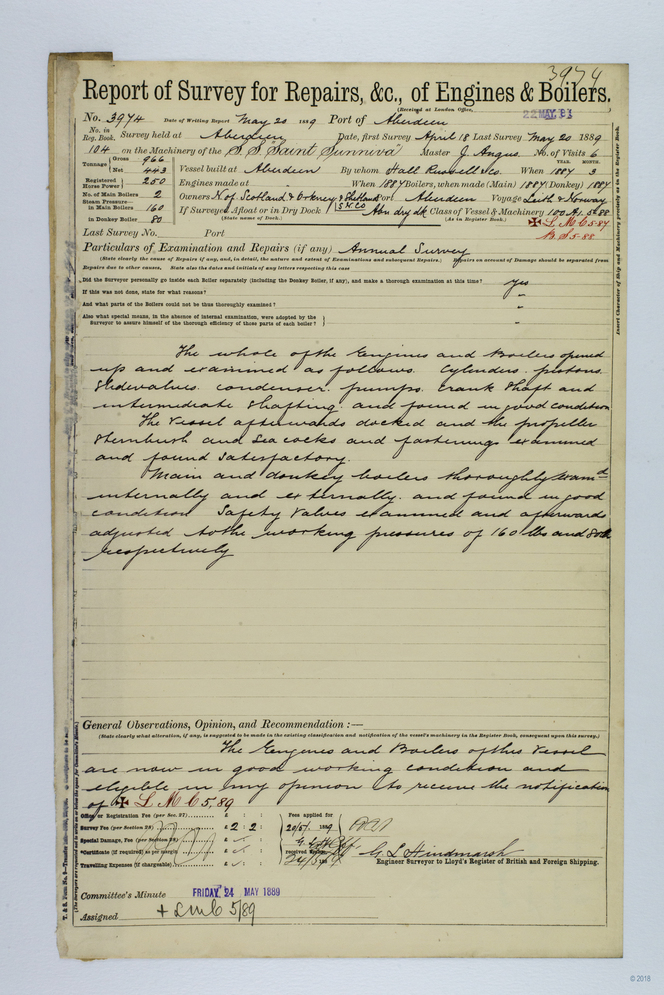 3974
Report of Survey for Repairs, &c., of Engines & Boilers.
(Received at London Office,
22 MAY 89
No. 3974 Date of Writing Report May 20 1889 Port of Aberdeen
No. in Reg. Book. Survey held at Aberdeen Date, first Survey April 18 Last Survey May 20 1889
104 on the Machinery of the S.S. "Saint Sunniva" Master J. Angus No. of Visits 6
Tonnage Gross 966 Net 443
YEAR. MONTH.
Vessel built at Aberdeen By whom Hall Russell & Co. When 1887 3
Registered Horse Power 250
Engines made at - When 1887 Boilers, when made (Main) 1887 (Donkey) 1887
No. of Main Boilers 2
Owners N. of Scotland & Orkney & Shetland S N Co Port Aberdeen Voyage Leith & Norway
Steam Pressure in Main Boilers 160
If Surveyed Afloat or in Dry Dock Abn dry dk Class of Vessel & Machinery 100 A1. 5-88
(State name of Dock.) (As in Register Book.)
in Donkey Boiler 80
L M C 5-87
B.S 5-88
Last Survey No. Port
Particulars of Examination and Repairs (if any) Annual Survey
(State clearly the cause of Repairs if any, and, in detail, the nature and extent of Examinations and subsequent Repairs.) Repairs on account of Damage should be separated from
Repairs due to other causes, State also the dates and initials of any letters respecting this case
Did the Surveyor personally go inside each Boiler separately (including the Donkey Boiler, if any), and make a thorough examination at this time? Yes
If this was not done, state for what reasons? "
And what parts of the Boilers could not be thus thoroughly examined? "
Also what special means, in the absence of internal examination, were adopted by the
Surveyor to assure himself of the thorough efficiency of those parts of each boiler? "
The whole of the Engines and Boilers opened
up and examined as follows. Cylinders. pistons.
Slidevalves. condenser. pumps. crank shaft and
intermediate shafting. and found in good condition
The Vessel afterwards docked and the propeller
Sternbush and Sea cocks and fastenings examined
and found satisfactory.
Main and donkey boilers thoroughly examd
internally and externally. and found in good
condition Safety Valves examined and afterwards
adjusted to the working pressures of 160 lbs and 80 lbs
respectively
General Observations, Opinion, and Recommendation :—
(State clearly what alteration, if any, is suggested to be made in the existing classification and notification of the vessel's machinery in the Register Book, consequent upon this survey.)
The Engines and Boilers of this Vessel
are now in good working condition and
eligible in my opinion to receive the notification
of L. M C 5,89
Office or Registration Fee (per Sec. 27) £ : : Fees applied for
Survey Fee (per Section 28) £ 2 : 2 : 20/5/ 1889
Special Damage, Fee (per Section 28) £
*Certificate (if required) as per margin £ received
Travelling Expenses (if chargeable) £ 24/5/ 89
G. L Hindmarsh
Engineer Surveyor to Lloyd's Register of British and Foreign Shipping.
Committee's Minute FRIDAY 24 MAY 1889
Assigned + LMC 5/89
Insert Character of Ship and Machinery precisely as in the Register Book.
© 2018